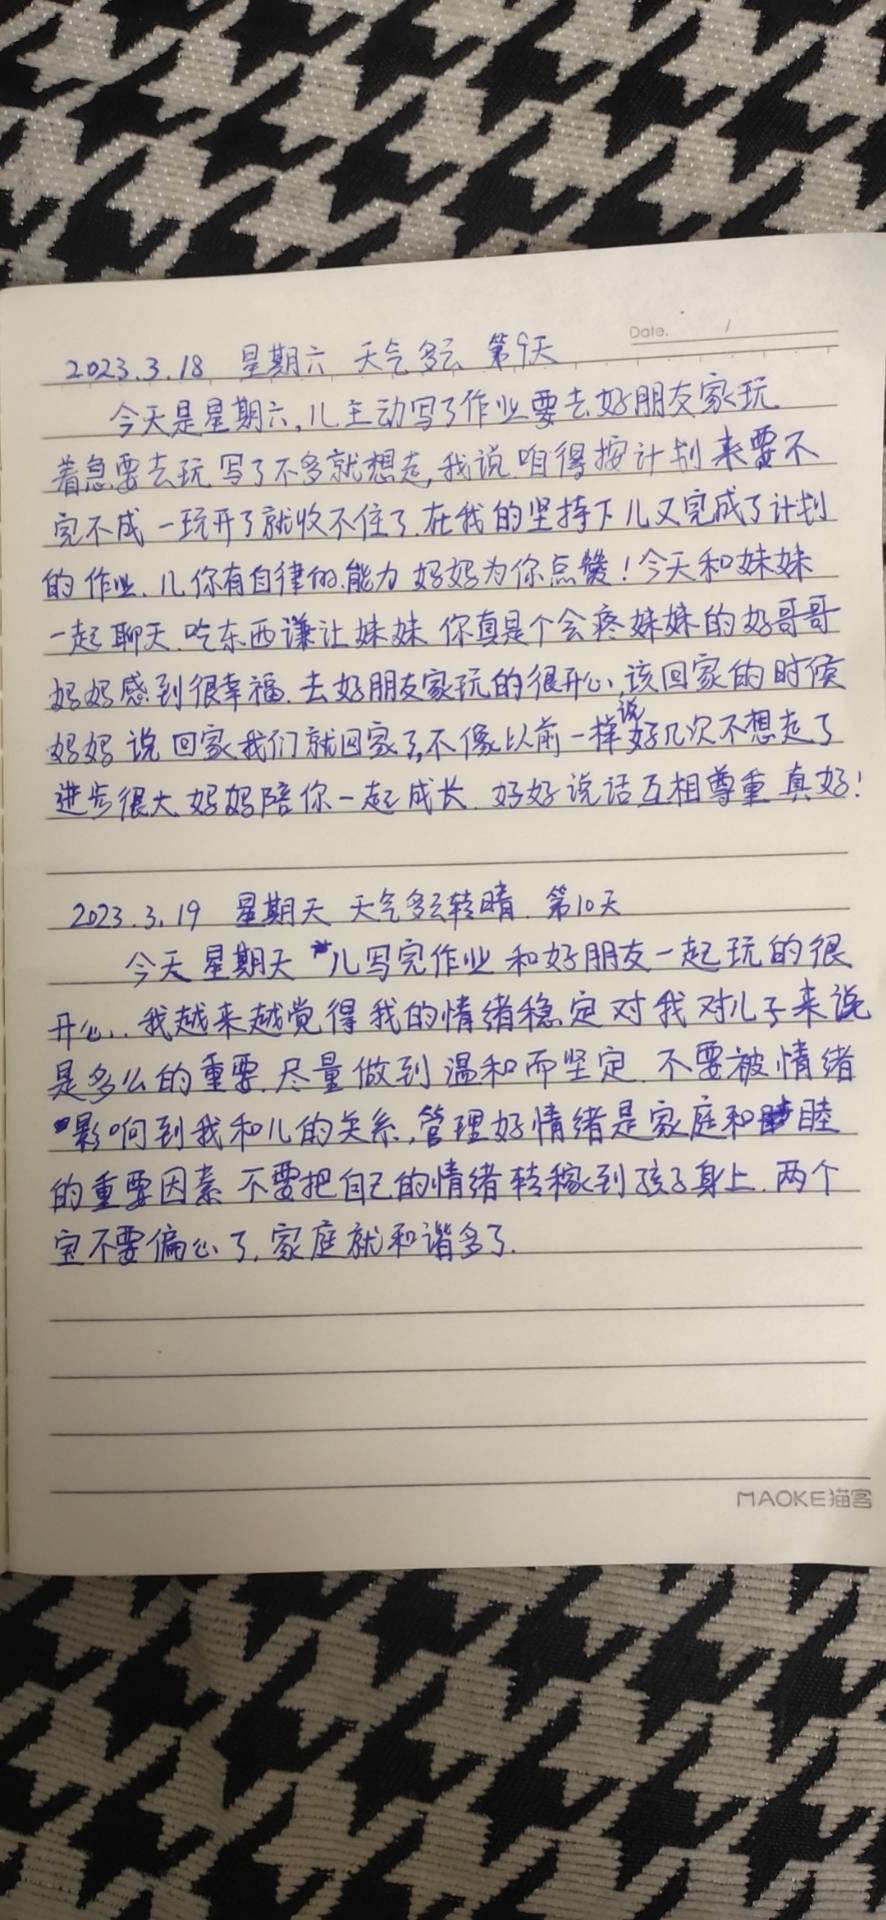 Date. /
2023.3.18 星期六 天气多云 第9天
今天是星期六,儿主动写了作业要去好朋友家玩
着急要去玩 写了不多就想走,我说咱得按计划来要不
完不成 一玩开了就收不住了.在我的坚持下儿又完成了计划
的作业.儿你有自律的能力 妈妈为你点赞!今天和妹妹
一起聊天.吃东西谦让妹妹 你真是个会疼妹妹的好哥哥
妈妈感到很幸福.去好朋友家玩的很开心,该回家的时候
妈妈说回家我们就回家了,不像以前一样说好几次不想走了
进步很大 妈妈陪你一起成长.好好说话互相尊重 真好!
2023.3.19 星期天 天气多云转晴.第10天
今天星期天 儿写完作业和好朋友一起玩的很
开心..我越来越觉得我的情绪稳定对我对儿子来说
是多么的重要.尽量做到温和而坚定.不要被情绪
影响到我和儿的关系,管理好情绪是家庭和睦
的重要因素 不要把自己的情绪转稼到孩子身上.两个
宝不要偏心了,家庭就和谐多了.
MAOKE猫客